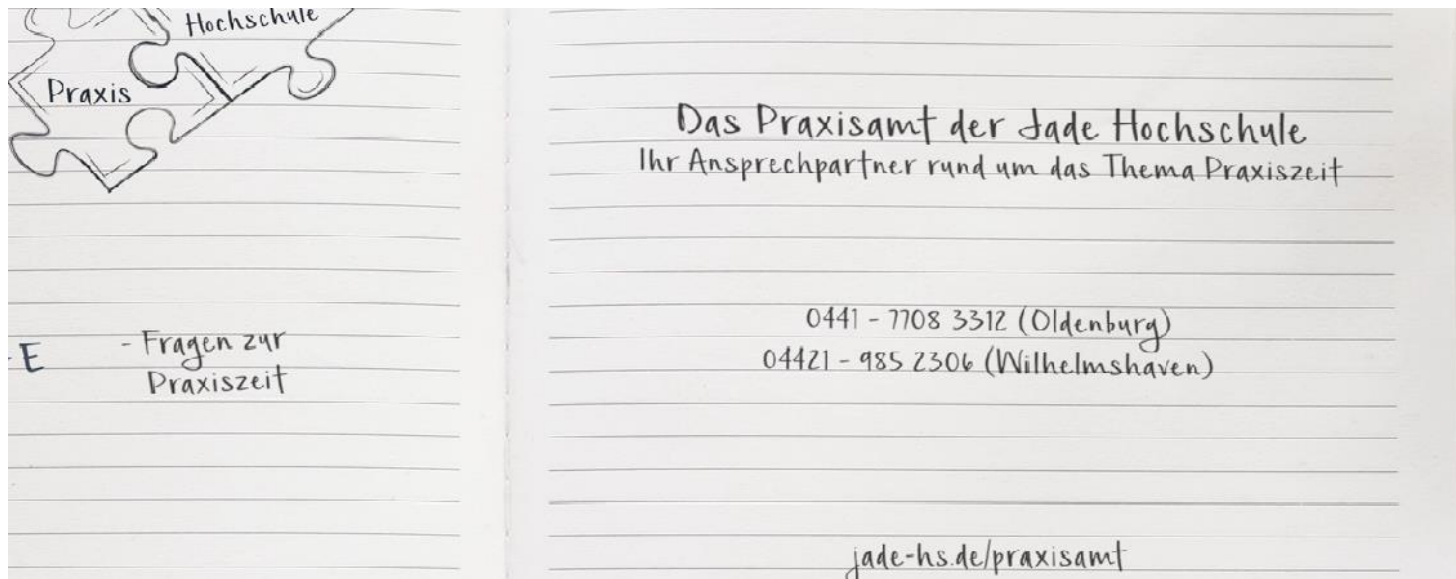 Hochschule
Praxis
- Fragen zur
Praxiszeit
Das Praxisamt der Jade Hochschule
Ihr Ansprechpartner rund um das Thema Praxiszeit
0441 - 7708 3312 (Oldenburg)
04421 - 985 2306 (Wilhelmshaven)
jade-hs.de/praxisamt